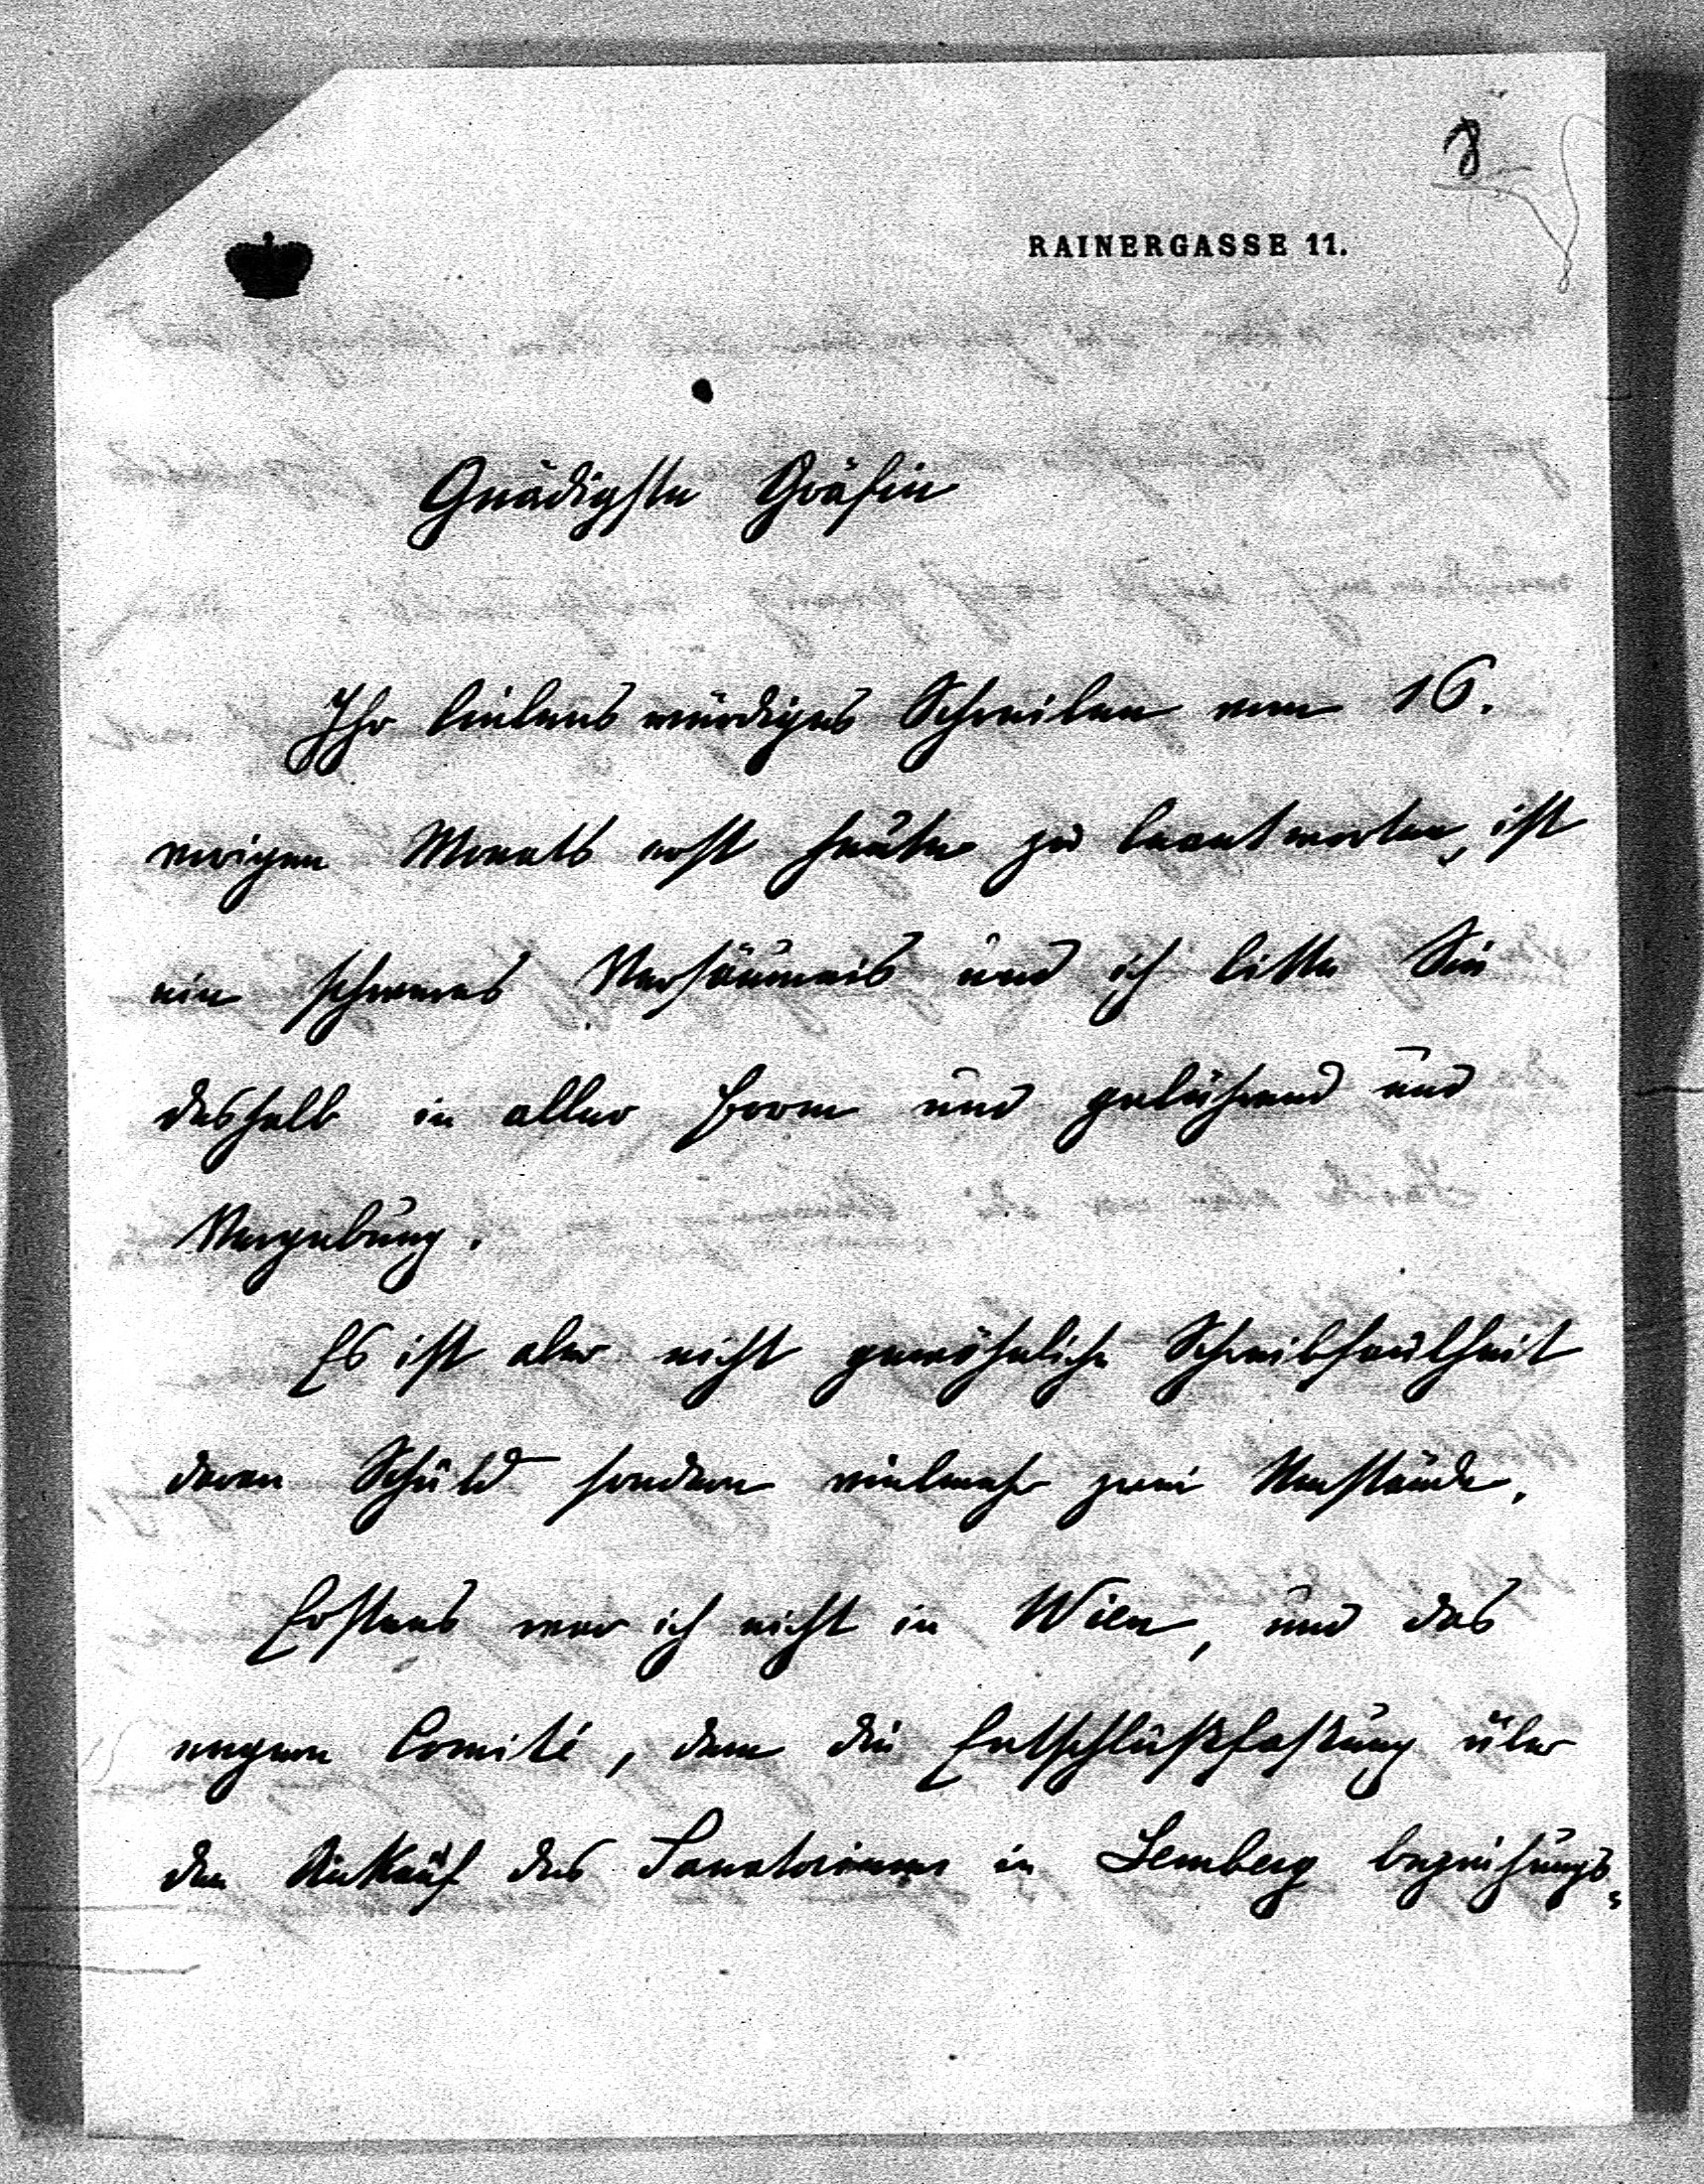 8
RAINERGASSE 11.
Gnädigste Gräfin
Ihr liebenswürdiges Schreiben vom 16.
vorigen Monats erst heute zu beantworten, ist
ein schweres Versäumnis und ich bitte Sie
deshalb in aller Form und gebührend und
Vergebung.
Es ist aber nicht gewöhnliche Schreibfaulheit
daran Schuld sondern vielmehr zwei Umstände.
Erstens war ich nicht in Wien, und das
engere Comité, dem die Entschlußfassung über
den Ankauf des Sanatoriums in Lemberg beziehungs=